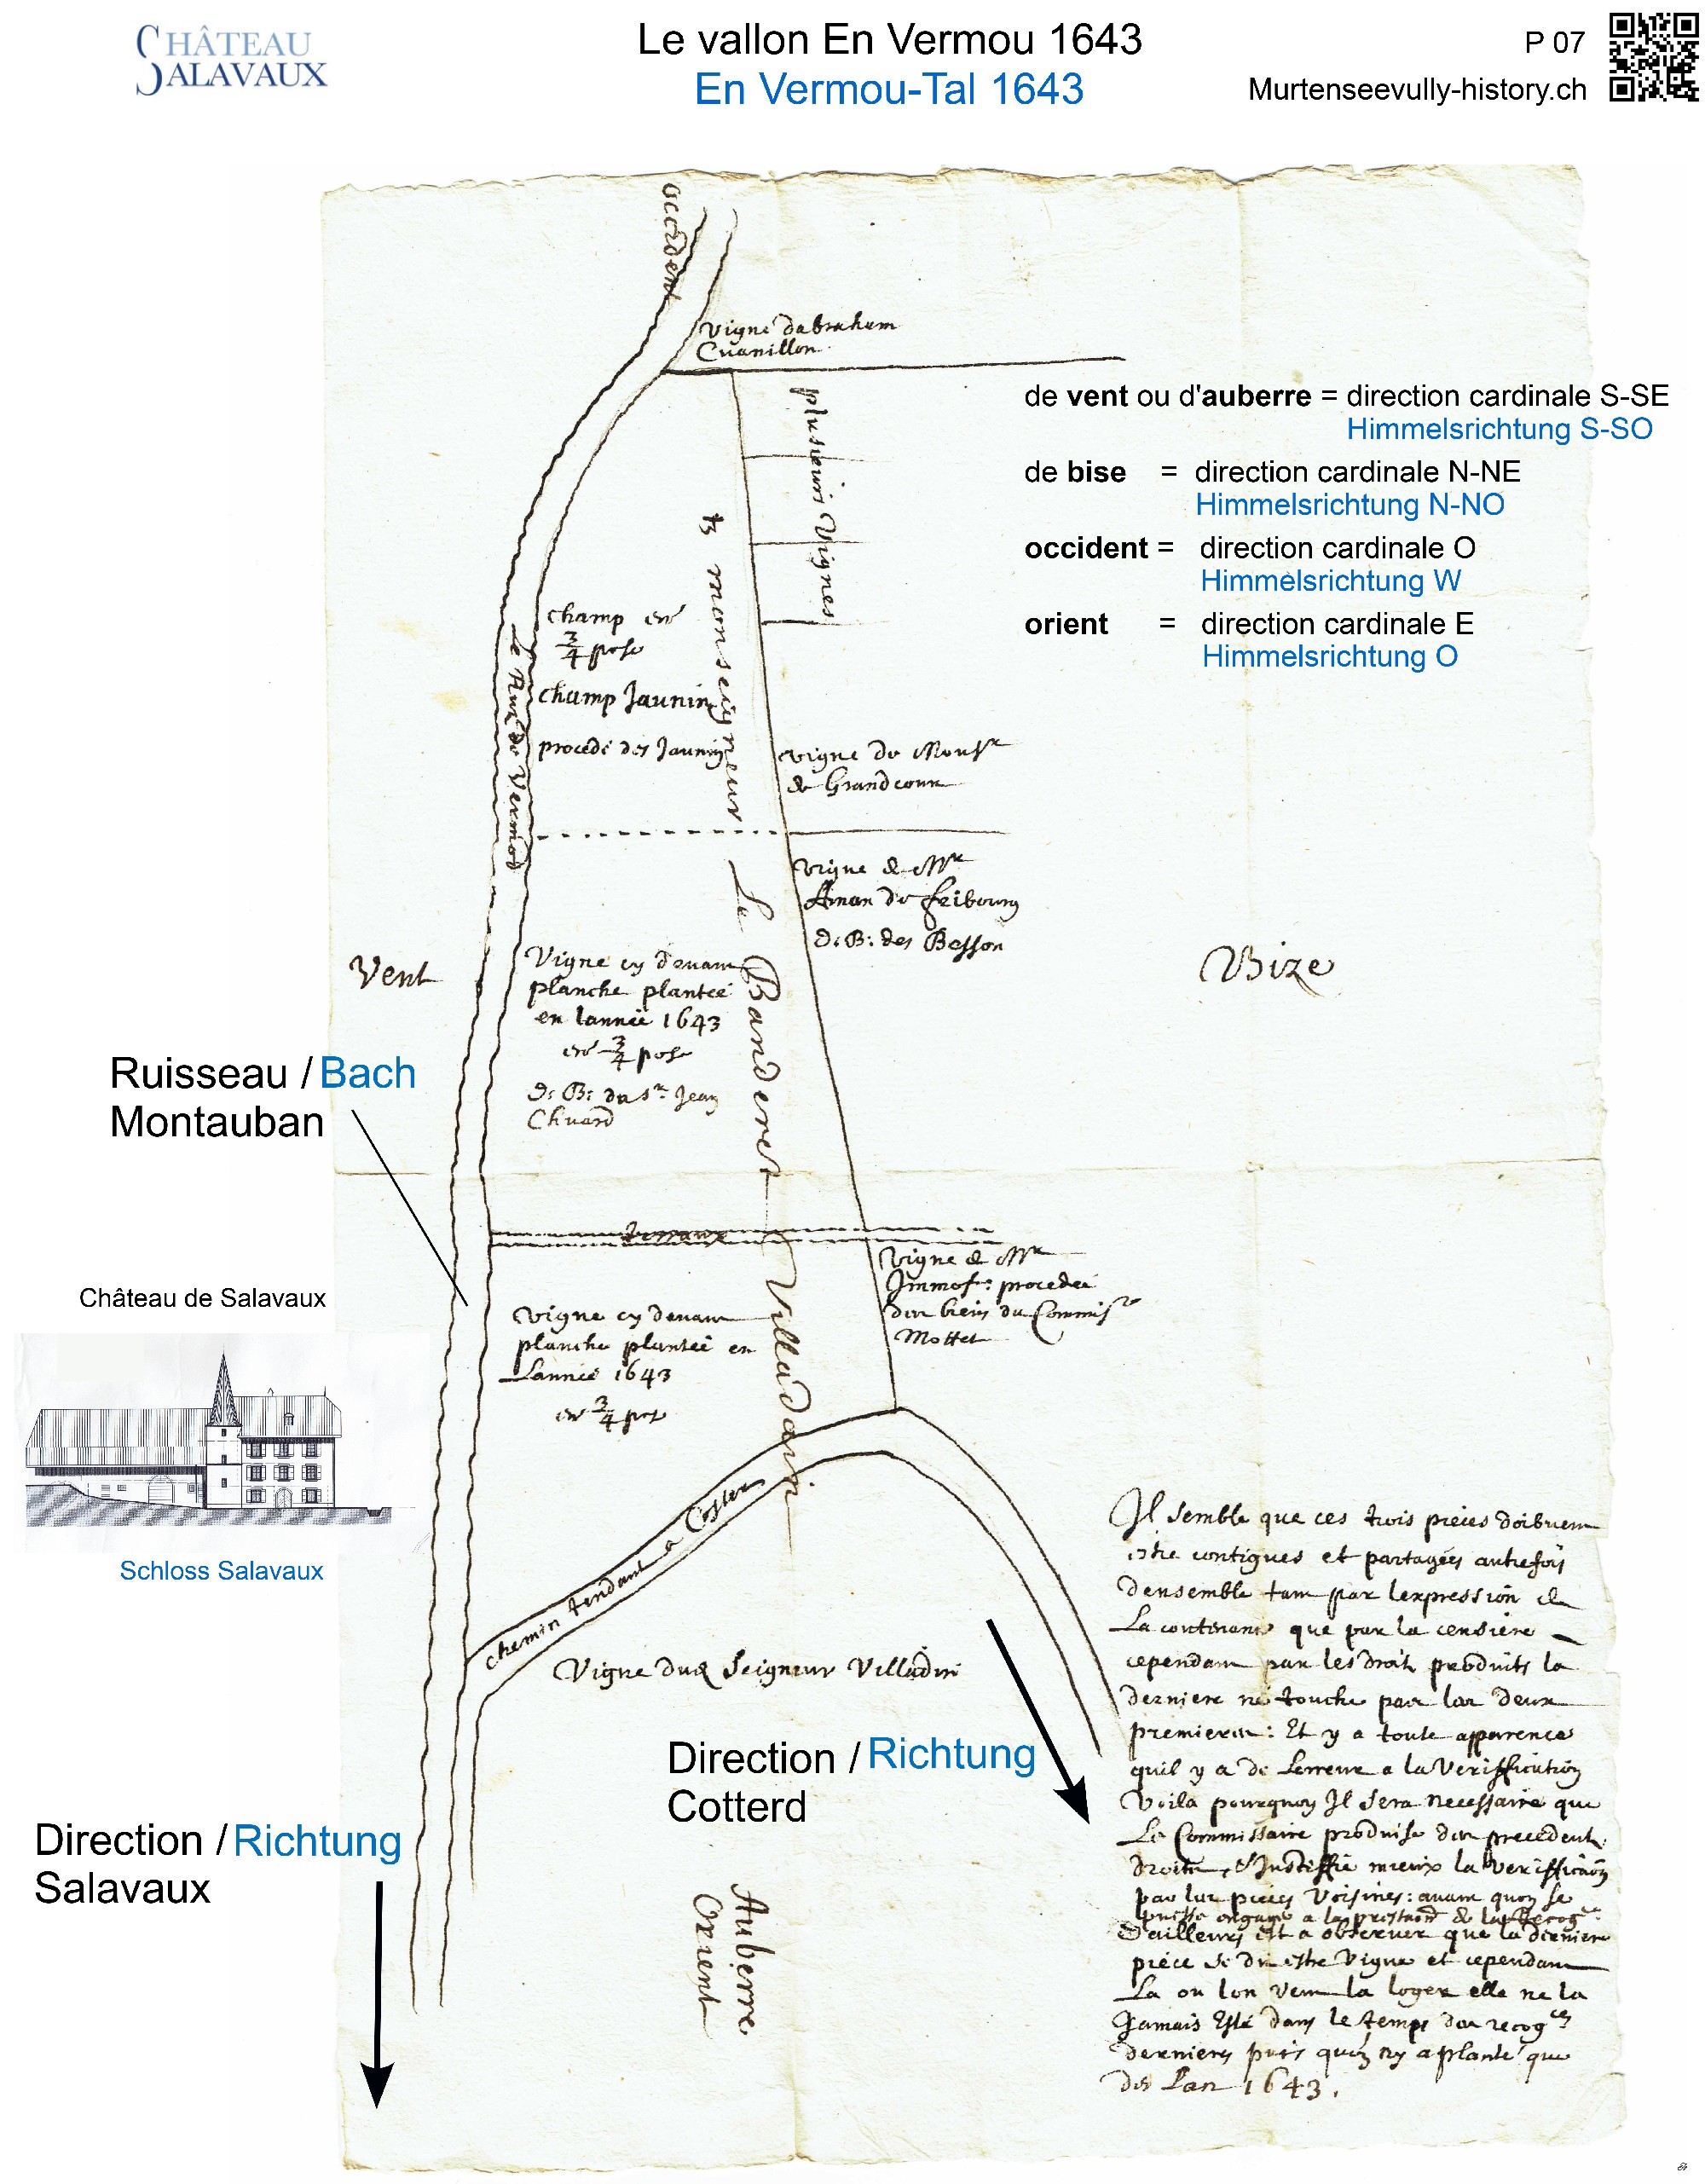 CHÂTEAU
SALAVAUX
Le vallon En Vermou 1643
En Vermou-Tal 1643
P 07
Murtenseevully-history.ch
occident
Vigne dabraham
Cuanillon
de vent ou d'auberre = direction cardinale S-SE
Himmelsrichtung S-SO
de bise = direction cardinale N-NE
Himmelsrichtung N-NO
occident = direction cardinale O
Himmelsrichtung W
orient = direction cardinale E
Himmelsrichtung O
plusieurs Vignes
monseigneur Le Banderet Villadin
champ
3/4 pose
champ Jaunin
procedé des Jaunin
Le Ruz de Vermod
vigne de Monsr
de Grandcour
vigne de Mr
de fribourg
D: B: des Besson
Vent
Bize
Vigne cy devant
planche plantée
en lannée 1643
3/4 pose
D: B: du sr Jean
Chuard
Ruisseau / Bach
Montauban
terraux
Vigne de Mr
procedee
des biens du Commisre
Mottet
Château de Salavaux
vigne cy devant
planche plantée en
Lannée 1643
3/4 pose
Schloss Salavaux
chemin tendant a Coster
Vigne dud Seigneur Villadin
Direction / Richtung
Cotterd
Direction / Richtung
Salavaux
Auberre
Orient
Il semble que ces trois pieces doibuent
estre contigues et partagées autrefois
densemble tant par lexpression de
La contenance que par la censiere
cependant par les droits produits la
derniere ne touche pas les deux
premieres: Et y a toute apparence
quil y a de Lerreur a la Veriffication
Voila pourquoy Il sera necessaire que
Le Commissaire produise des precedents
droits, & Justiffie mieux la veriffication
par les pieces Voisines: avant quon se
puisse engager a la prestaon de la Recogce
Dailleurs est a observer que la derniere
piece se dit estre Vigne et cependant
La ou lon veut la loger elle ne la
Jamais Esté dans le temps des recogces
dernieres puis quon ny a planté que
des Lan 1643.